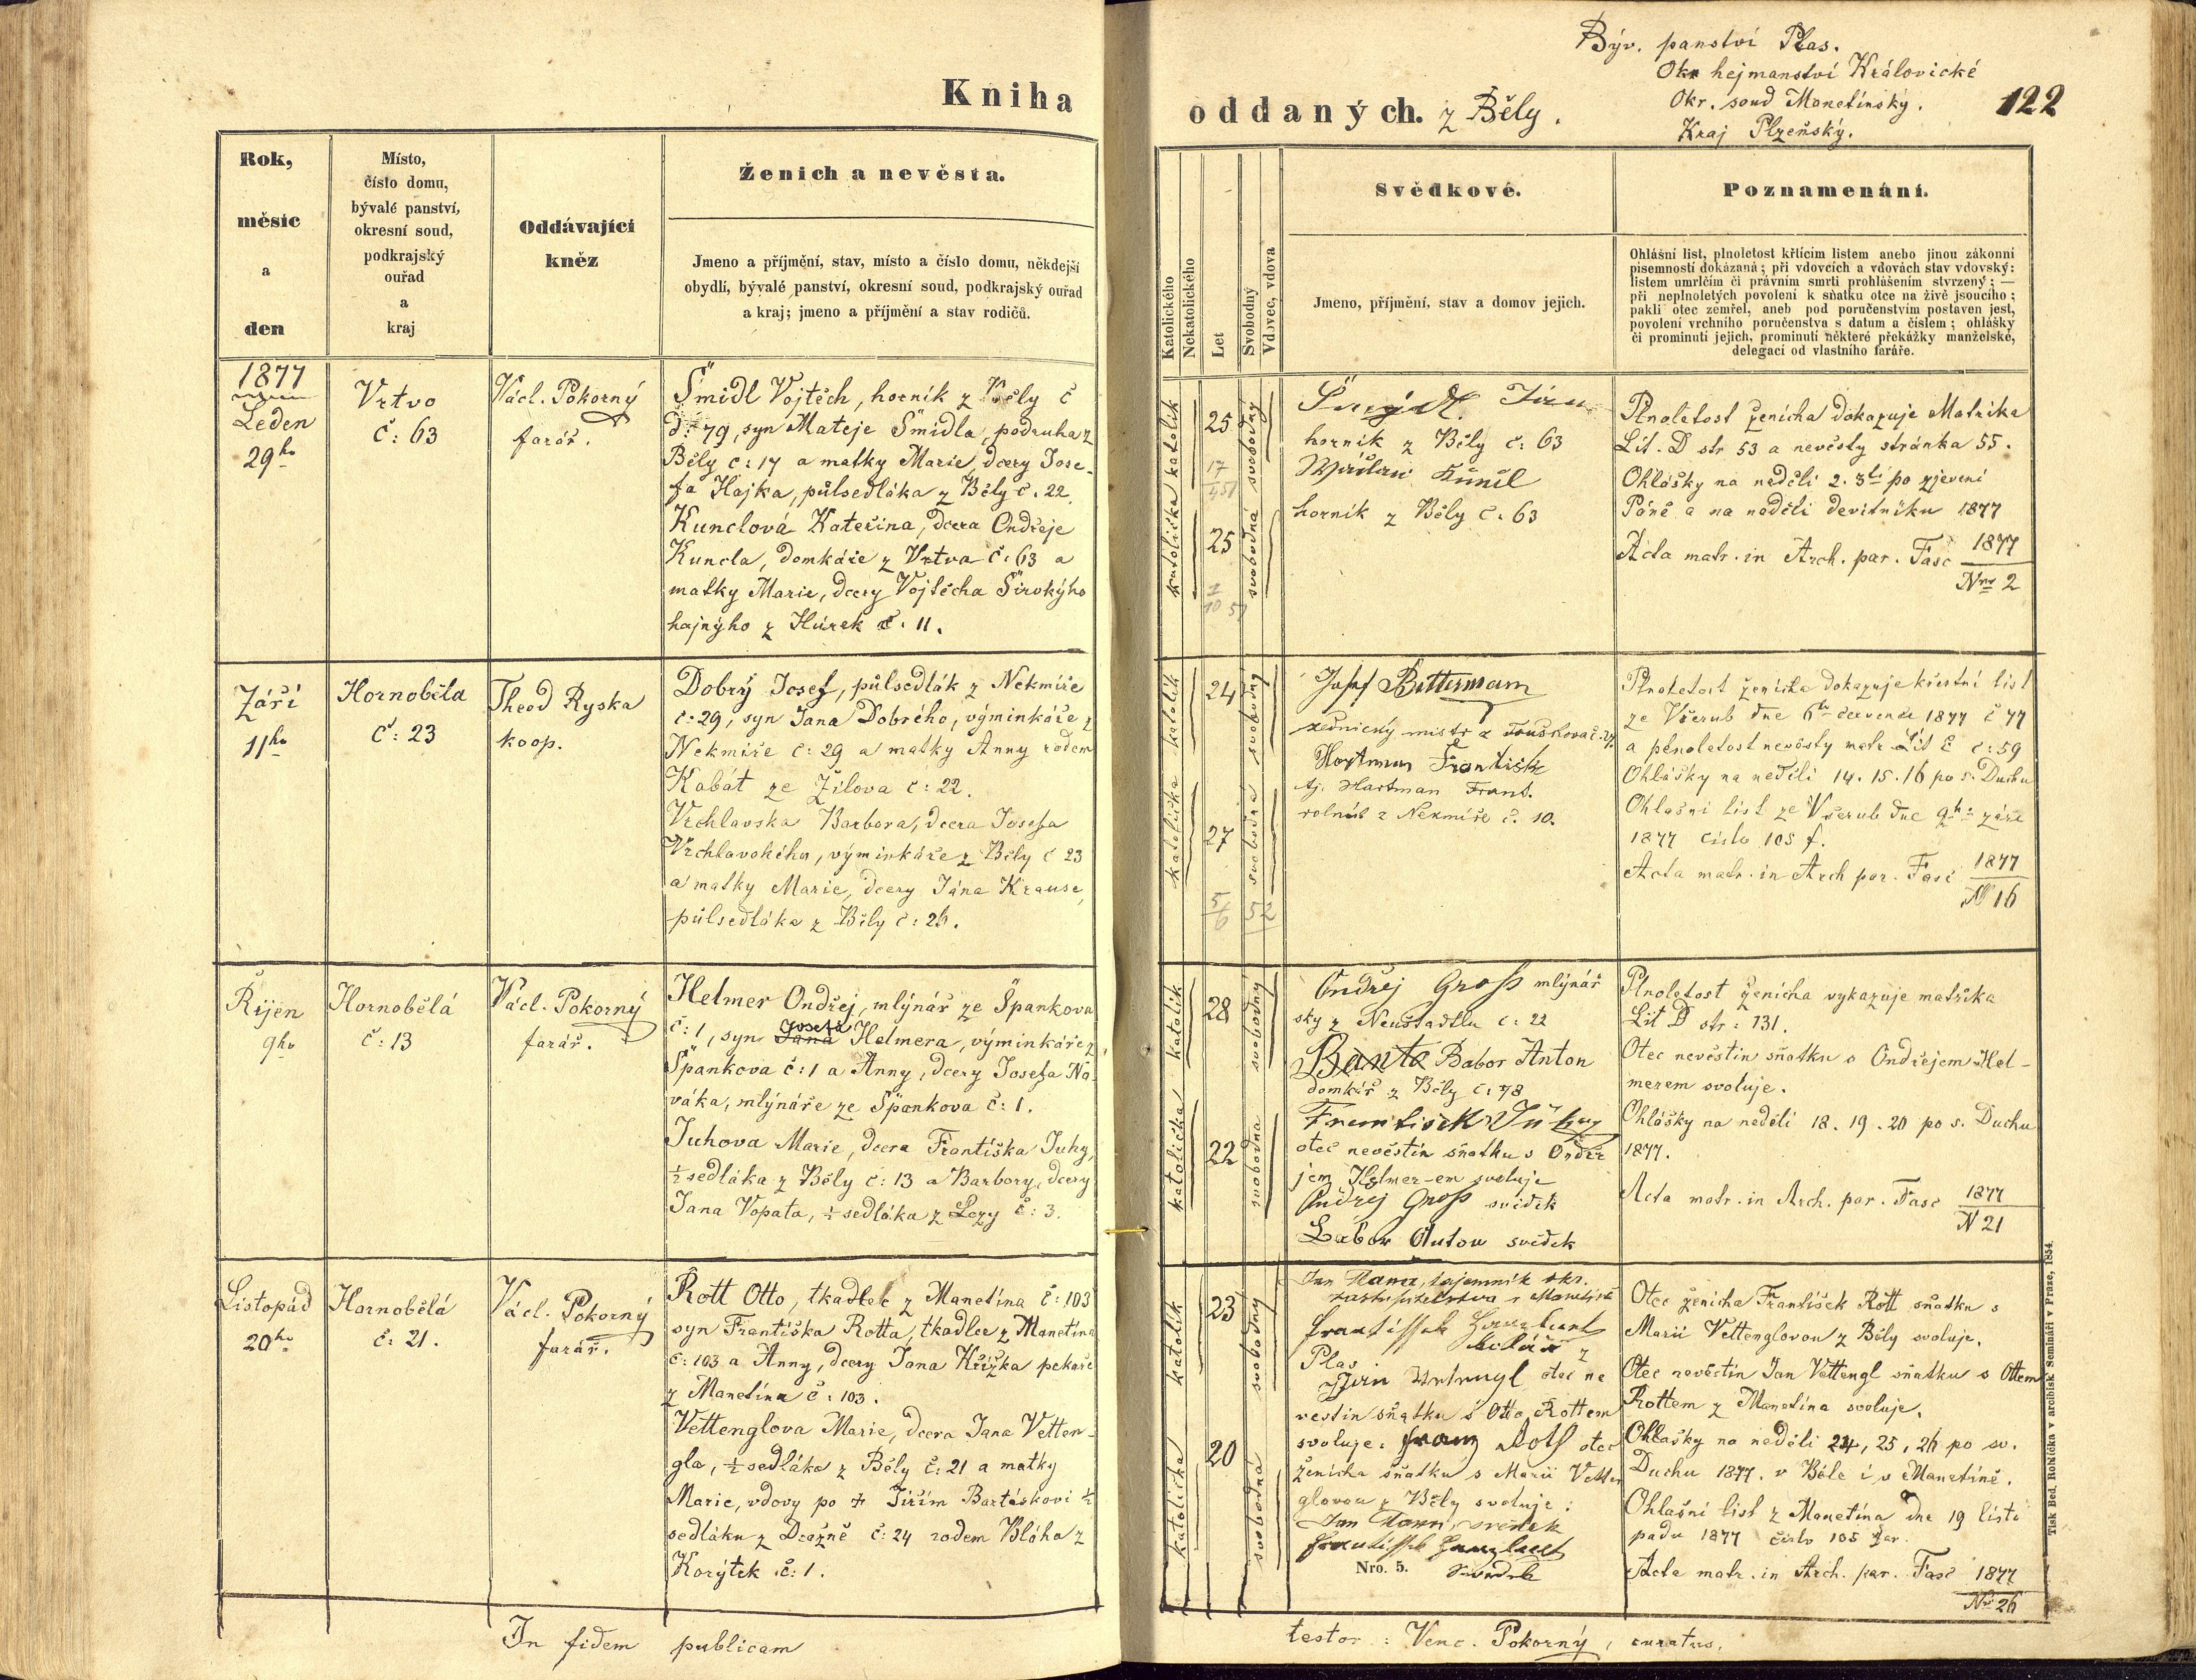 Býv. panství Plas.
Okr hejmanství Královické
Okr. soud Manetínský.
Kraj Plzeňský.
122
Kniha
oddaných. z Běly.
Rok,
měsíc
a
den
Místo,
číslo domu,
bývalé panství,
okresní soud,
podkrajský
ouřad
a
kraj
Oddávající
kněz
Ženich a nevěsta.
Jmeno a příjmění, stav, místo a číslo domu, někdejší
obydlí, bývalé panství, okresní soud, podkrajský ouřad
a kraj; jmeno a příjmění a stav rodičů.
Katolického
Nekatolického
Let
Svobodný
Vdovec, vdova
Svědkové.
Jmeno, příjmění, stav a domov jejich.
Poznamenání.
Ohlášní list, plnoletost křtícím listem anebo jinou zákonní
písemností dokázaná; při vdovcích a vdovách stav vdovský:
listem umrlčím či právním smrti prohlášením stvrzený; —
při neplnoletých povolení k sňatku otce na živě jsoucího;
pakli otec zemřel, aneb pod poručenstvím postaven jest,
povolení vrchního poručenstva s datum a číslem; ohlášky
či prominutí jejich, prominutí některé překážky manželské,
delegací od vlastního faráře.
1877
Leden
29ho
Vrtvo
č: 63
Václ. Pokorný
farář.
Šmidl Vojtěch, horník z Běly č
d: 79, syn Mateje Šmidla, podruha z
Běly č: 17 a matky Marie, dcery Jose-
fa Hajka, půlsedláka z Běly č. 22.
Kunclová Kateřina, dcera Ondřeje
Kuncla, domkáře z Vrtva č: 63 a
matky Marie, dcery Vojtěcha Širokýho
hajnýho z Hůrek č. 11.
katolík
katolička
25
17
25
svobodný
svobodná
horník z Běly č: 63
horník z Běly č. 63
Plnoletost ženicha dokazuje Matrika
Lit. D str 53 a nevěsty stránka 55.
Ohlášky na neděli 2. 3tí po zjevení
Páně a na neděli devítníku 1877
Acta matr. in Arch. par. Fasc 1877
Nro 2
Září
11ho
Hornoběla
č: 23
Theod Ryska
koop.
Dobrý Josef, půlsedlák z Nekmíře
č: 29, syn Jana Dobrého, výminkáře z
Nekmíře č: 29 a matky Anny rodem
Kabát ze Žilova č: 22.
Vrchlavska Barbora, dcera Josefa
Vrchlavského, výminkáře z Běly č 23
a matky Marie, dcery Jána Krause,
půlsedláka z Běly č: 26.
katolík
katolička
24
27
5/6 52
svobodný
svobodná
Josef Bittermann
řeznický mistr z Touškova č. 27
Hartman František
tj. Hartman Frant.
rolník z Nekmíře č. 10.
Plnoletost ženicha dokazuje křestní list
ze Všerub dne 6ho července 1877 č 77
a plnoletost nevěsty matr Lit E č: 59
Ohlášky na neděli 14. 15. 16 po s. Duchu
Ohlašní list ze Všerub dne 9ho září
1877 číslo 105 f.
Acta matr. in Arch par. Fasc 1877
N 16
Říjen
9ho
Hornobělá
č: 13
Václ. Pokorný
farář.
Helmer Ondřej, mlýnář ze Špankova
č: 1, syn Jana Josefa Helmera, výminkáře z
Špankova č: 1 a Anny, dcery Josefa No-
váka, mlýnáře ze Špankova č: 1.
Juhova Marie, dcera Františka Juhy,
½ sedláka z Běly č: 13 a Barbory, dcery
Jana Vopata, ½ sedláka z Lozy č: 3.
katolík
katolička
28
22
svobodný
svobodna
Ondřej Groß mlýnář
sky z Neustadtlu č: 22
Babor Anton
domkář z Běly č: 78
otec nevěstin sňatku s Ondře
jem Helmer-em svoluje
Ondřej Groß svědek
Babor Anton svědek
Plnoletost ženicha vykazuje matrika
Lit D str: 131.
Otec nevěstin sňatku s Ondřejem Hel-
merem svoluje.
Ohlášky na neděli 18. 19. 20 po s. Duchu
1877.
Acta matr. in Arch. par. Fasc 1877
N 21
Listopád
20ho
Hornobělá
č: 21.
Václ. Pokorný
farář.
Rott Otto, tkadlec z Manetína č: 103
syn Františka Rotta, tkadlec z Manetína
č: 103 a Anny, dcery Jana Křížka pekaře
z Manetína č: 103.
Vettenglova Marie, dcera Jana Vetten-
gla, ½ sedláka z Běly č: 21 a matky
Marie, vdovy po † Jiřím Bartáskovi ½
sedláku z Dražně č: 24 rodem Bláha z
Korýtek č: 1.
katolík
katolička
23
20
svobodný
svobodná
tajemník okr.
zastupitelstva v Manetíně
z
Plas
otec ne
vestin sňatku s Otto Rottem
svoluje: Franz Rott otec
ženicha sňatku s Marii Vetten
glovou z Běly svoluje:
svědek
Nro. 5.
Otec ženicha František Rott sňatku s
Marii Vettenglovou z Běly svoluje.
Otec nevěstin Jan Vettengl sňatku s Ottem
Rottem z Manetína svoluje.
Ohlašky na neděli 24, 25, 26 po sv.
Duchu 1877. v Běle i v Manetíně.
Ohlašní list z Manetína dne 19 listo
padu 1877 číslo 105 par.
Acta matr. in Arch. par. Fasc 1877
Nro 26
Tisk Bed. Rohlíčka v arcibisk Semináři v Praze, 1854.
In fidem publicam
testor: Venc. Pokorný, curatus.